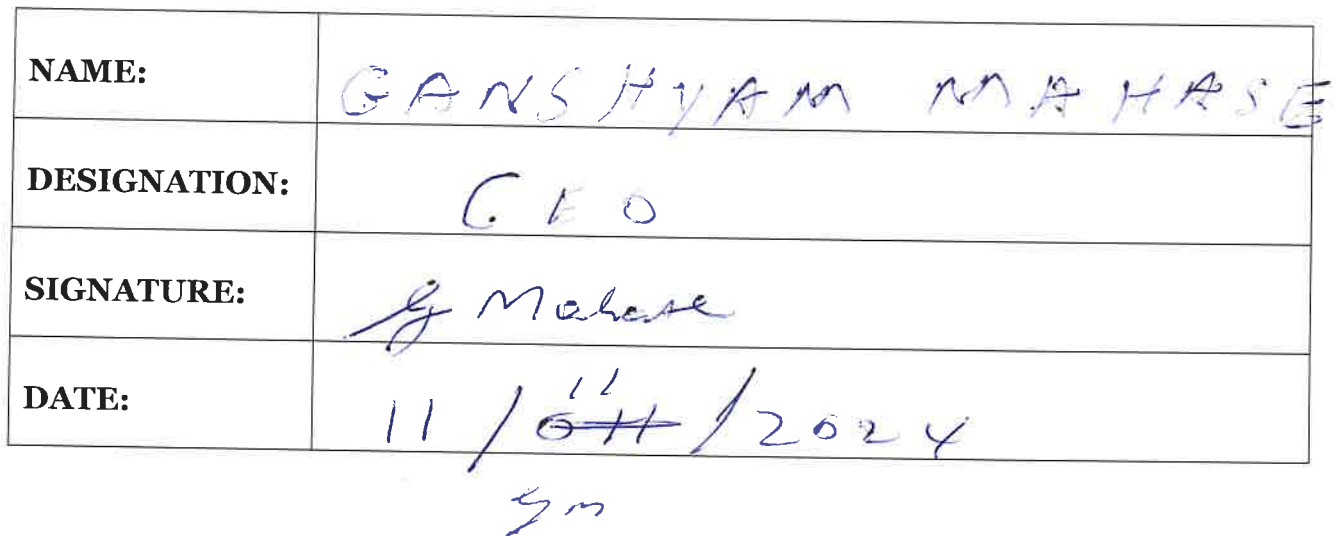 NAME: GANSHYAM MAHASE
DESIGNATION: CEO
SIGNATURE: G Mahase
11
DATE: 11/011/2024
gm